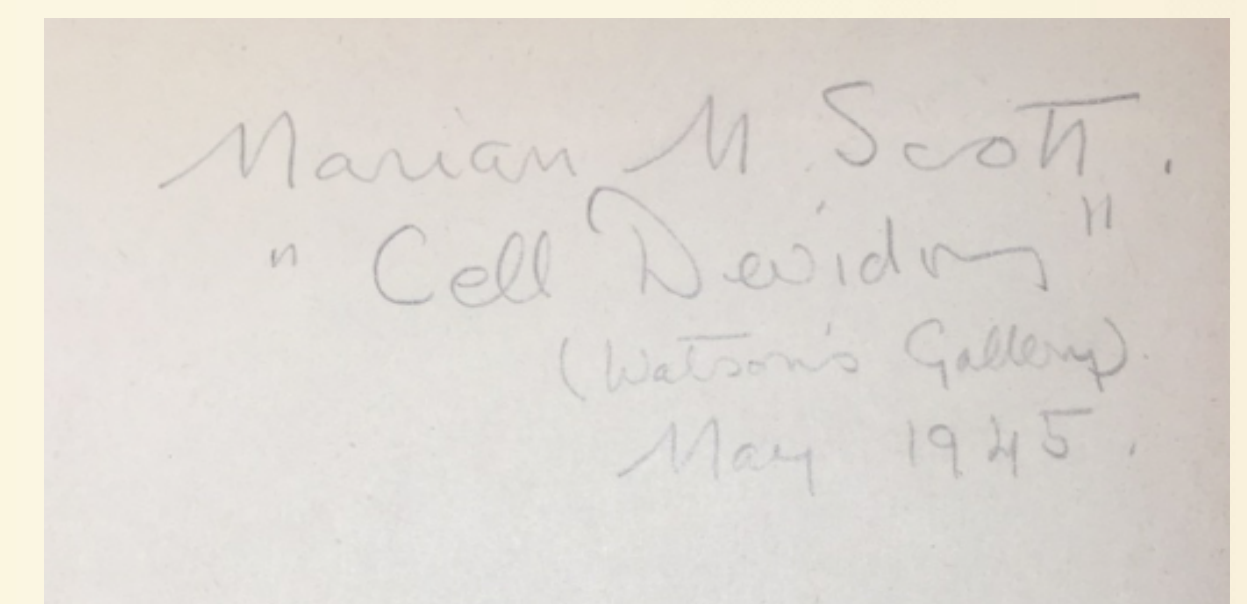 Marian M Scott.
"Cell Deviding"
(Watson's Gallery).
May 1945.